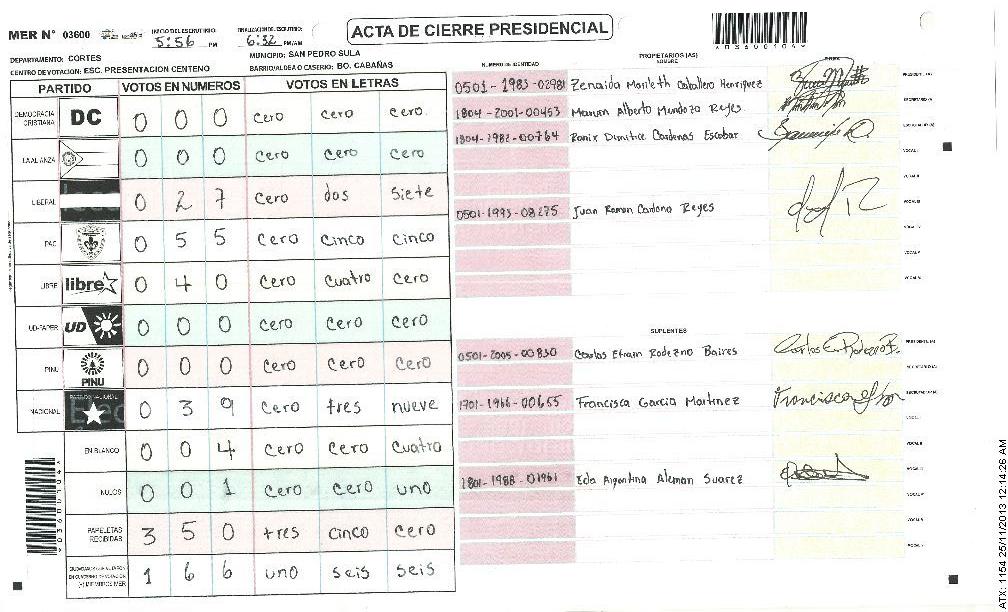 MER N° 03600
INICIO DEL ESCRUTINIO: 5:56 PM
FINALIZACION DE ESCRUTINIO: 6:32 PM/AM
ACTA DE CIERRE PRESIDENCIAL
DEPARTAMENTO: CORTES
MUNICIPIO: SAN PEDRO SULA
CENTRO DE VOTACION: ESC. PRESENTACION CENTENO
BARRIO/ALDEA O CASERIO: BO. CABAÑAS
PARTIDO VOTOS EN NUMEROS VOTOS EN LETRAS
DEMOCRACIA CRISTIANA DC 0 0 0 cero cero cero
0 0 0 cero cero cero
LIBERAL 0 2 7 cero dos siete
PAC 0 5 5 cero cinco cinco
LIBRE libre 0 4 0 cero cuatro cero
UD-FAPER UD 0 0 0 cero cero cero
PINU PINU 0 0 0 cero cero cero
NACIONAL 0 3 9 cero tres nueve
EN BLANCO 0 0 4 cero cero cuatro
NULOS 0 0 1 cero cero uno
PAPELETAS RECIBIDAS 3 5 0 tres cinco cero
1 6 6 uno seis seis
NUMERO DE IDENTIDAD
PROPIETARIOS (AS)
NOMBRE
0501-1983-02981 Zenaida Marleth Caballero Henriquez
1804-2001-00453 Marvin Alberto Mendoza Reyes
1804-1982-00764 Ronix Dimitrie Cardenas Escobar
0501-1993-08275 Juan Ramon Cardona Reyes
SUPLENTES
0501-2005-00830 Carlos Efrain Rodezno Baires
1701-1966-00655 Francisca Garcia Martinez
1801-1988-01961 Eda Argentina Aleman Suarez
ATX: 1154 25/11/2013 12:14:26 AM